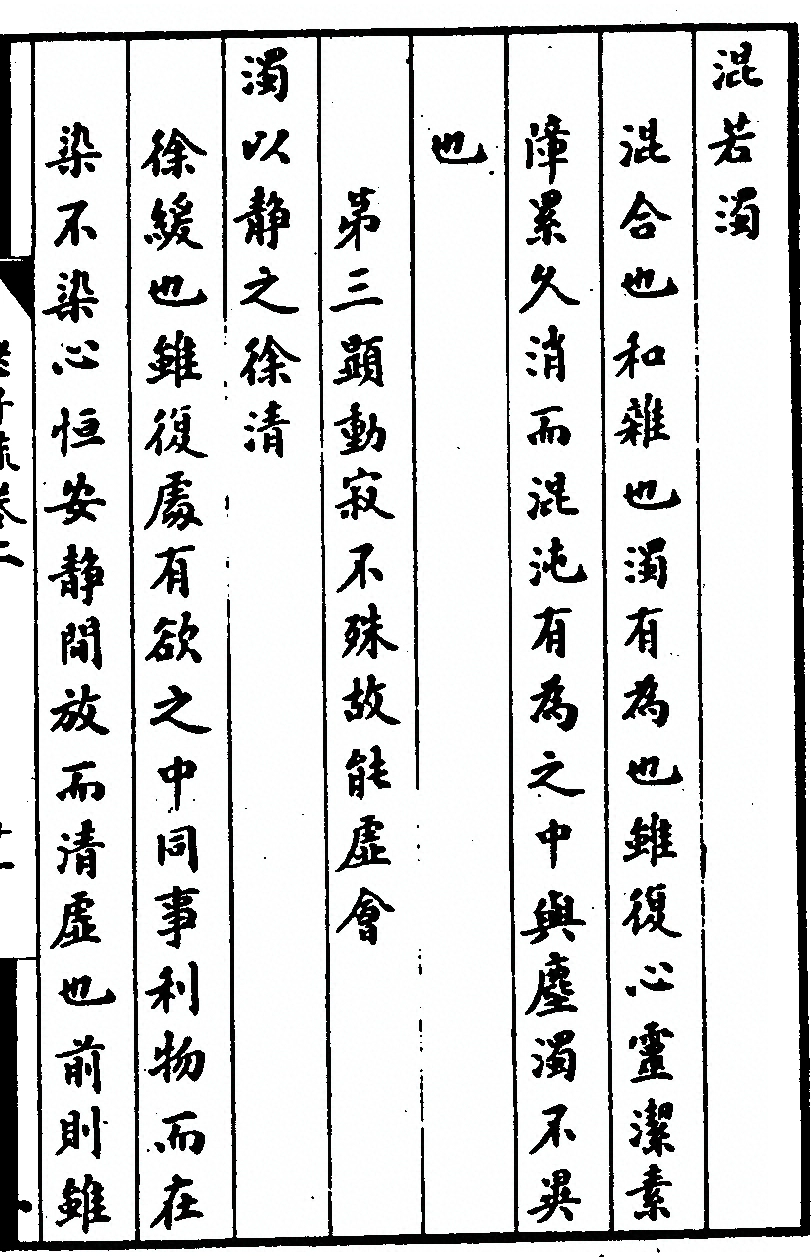 混若濁
混合也和雜也濁有為也雖復心靈潔素
障累久消而混沌有為之中與塵濁不異
也
第三顯動寂不殊故能虛會
濁以靜之徐清
徐緩也雖復處有欲之中同事利物而在
染不染心恒安靜閒放而清虛也前則雖
老子疏卷二